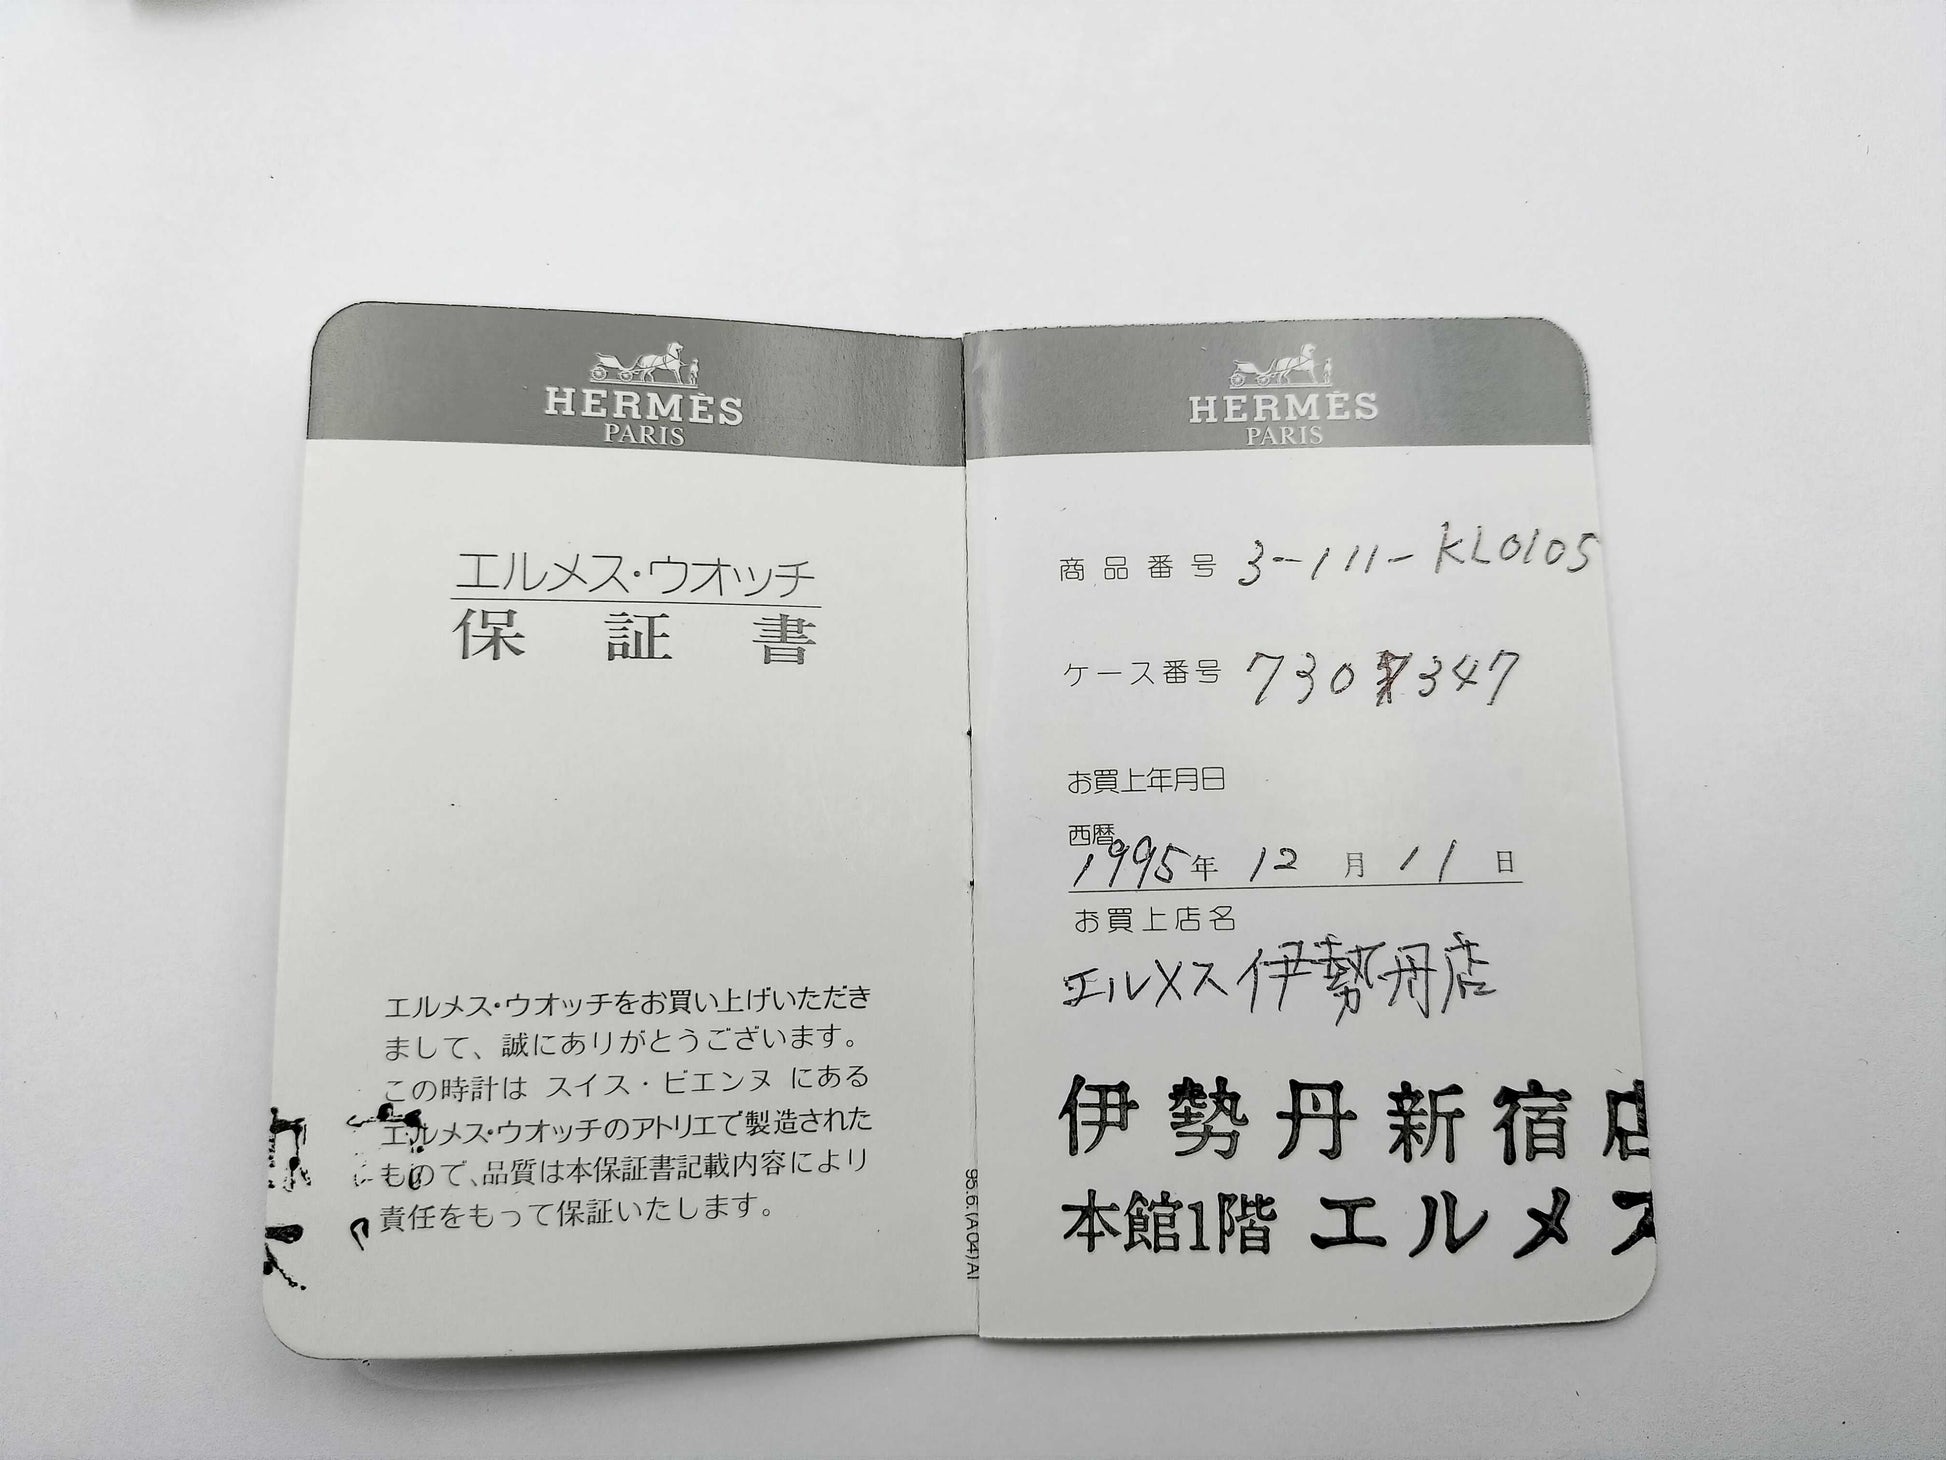 HERMÈS
PARIS
エルメス・ウオッチ
保証書
エルメス・ウオッチをお買い上げいただき
まして、誠にありがとうございます。
この時計は スイス・ビエンヌ にある
エルメス・ウオッチのアトリエで製造された
もので、品質は本保証書記載内容により
責任をもって保証いたします。
95.6.(A04)AI
HERMÈS
PARIS
商品番号 3-111-KL0105
ケース番号 730 347
お買上年月日
西暦
1995年 12月 11日
お買上店名
エルメス伊勢丹店
伊勢丹新宿店
本館1階 エルメス